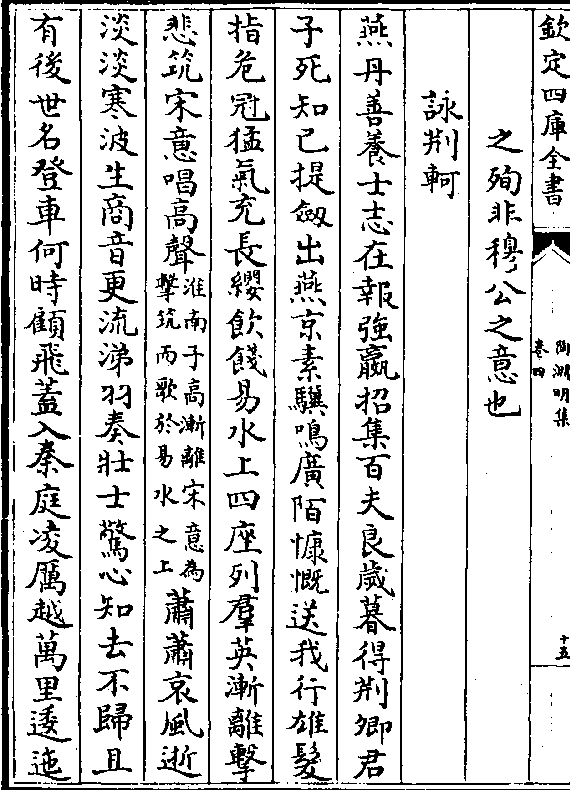 欽定四庫全書
陶淵明集
卷四
十五
之殉非穆公之意也
詠荆軻
燕丹善養士志在報強嬴招集百夫良歲暮得荆卿君
子死知已提劔出燕京素驥鳴廣陌慷慨送我行雄髮
指危冠猛氣充長纓飲餞易水上四座列羣英漸離擊
悲筑宋意唱高聲淮南子高漸離宋意為擊筑而歌於易水之上蕭蕭哀風逝
淡淡寒波生商音更流涕羽奏壯士驚心知去不歸且
有後世名登車何時顧飛蓋入秦庭凌厲越萬里逶迤